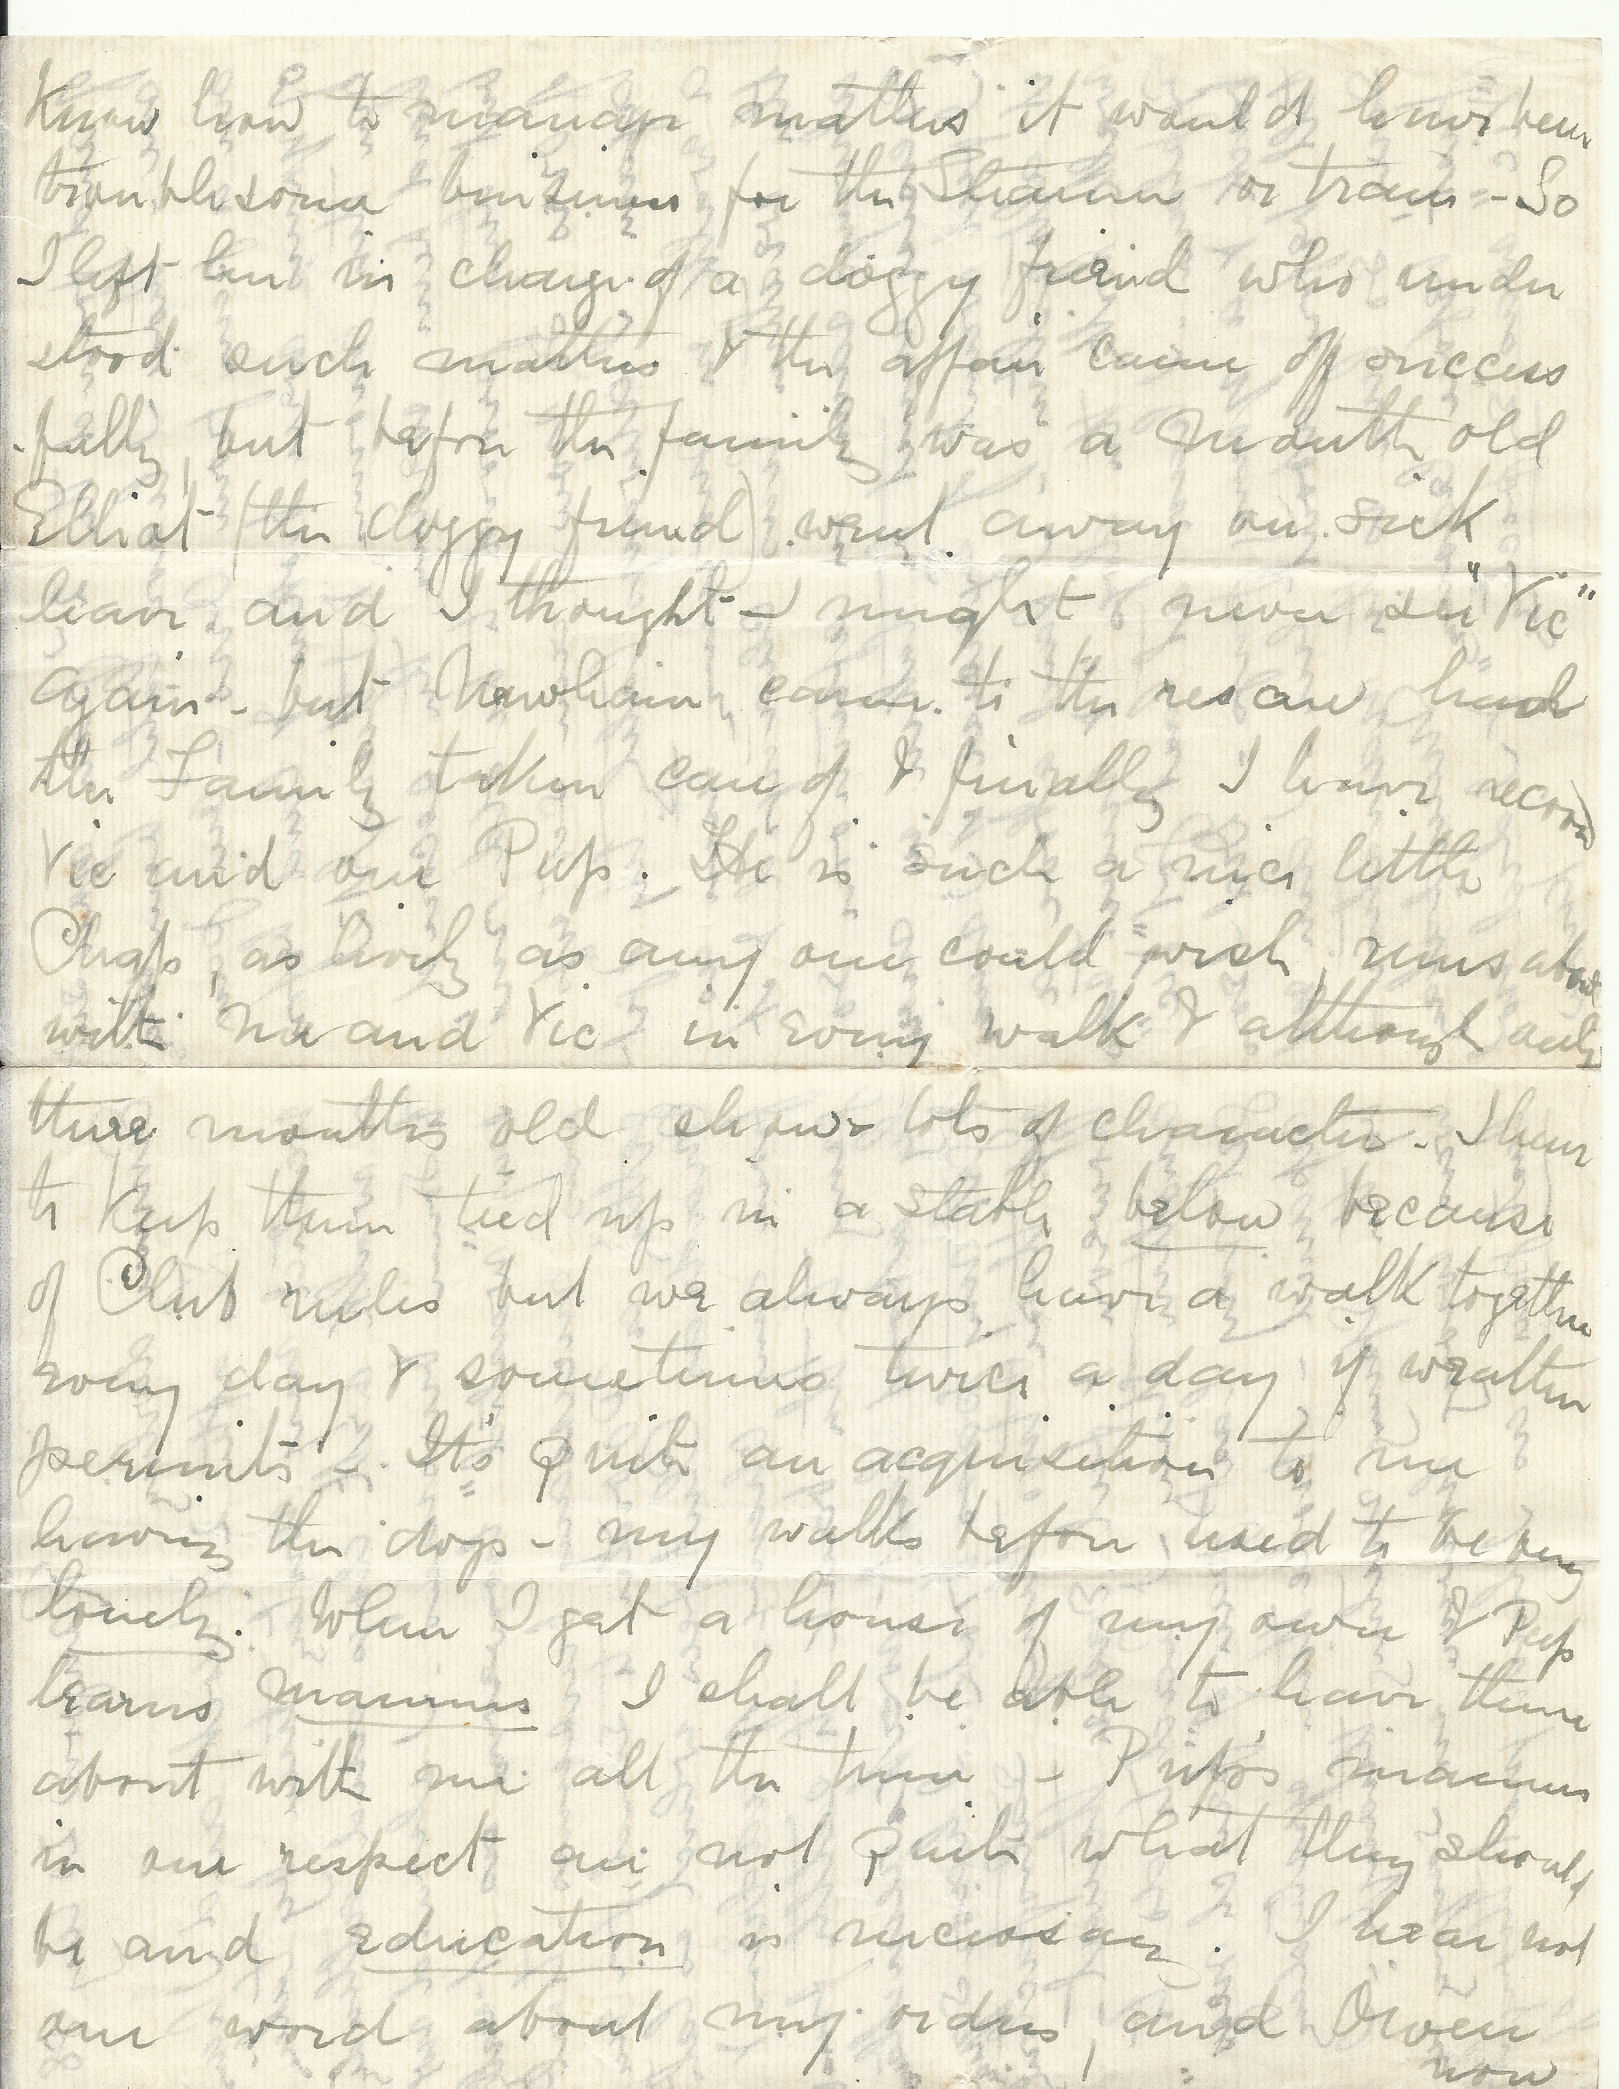 know how to manage matters it would have been
troublesome business for the Steamer or train - So
I left her in charge of a doggy friend who under
stood such matters & the affair came off success
-fully, but before the family was a month old
Elliot (the doggy friend) went away on sick
leave and I thought I might never see "Vic"
again - but came to the rescue had
the Family taken care of & finally I have
Vic and one Pup. He is such a nice little
Chap, as lively as any one could wish, runs about
with me and Vic in every walk & although only
three months old shows lots of character - I have
to keep them tied up in a stable below because
of Club rules but we always have a walk together
every day & sometimes twice a day if weather
permits - It's quite an acquisition to me
having the dogs - my walks before used to be very
lonely. When I get a house of my own & Pup
learns manners I shall be able to have them
about with me all the time - Pup's manners
in one respect are not quite what they should
be and education is necessary. I hear not
one word about my orders, and Owen
now